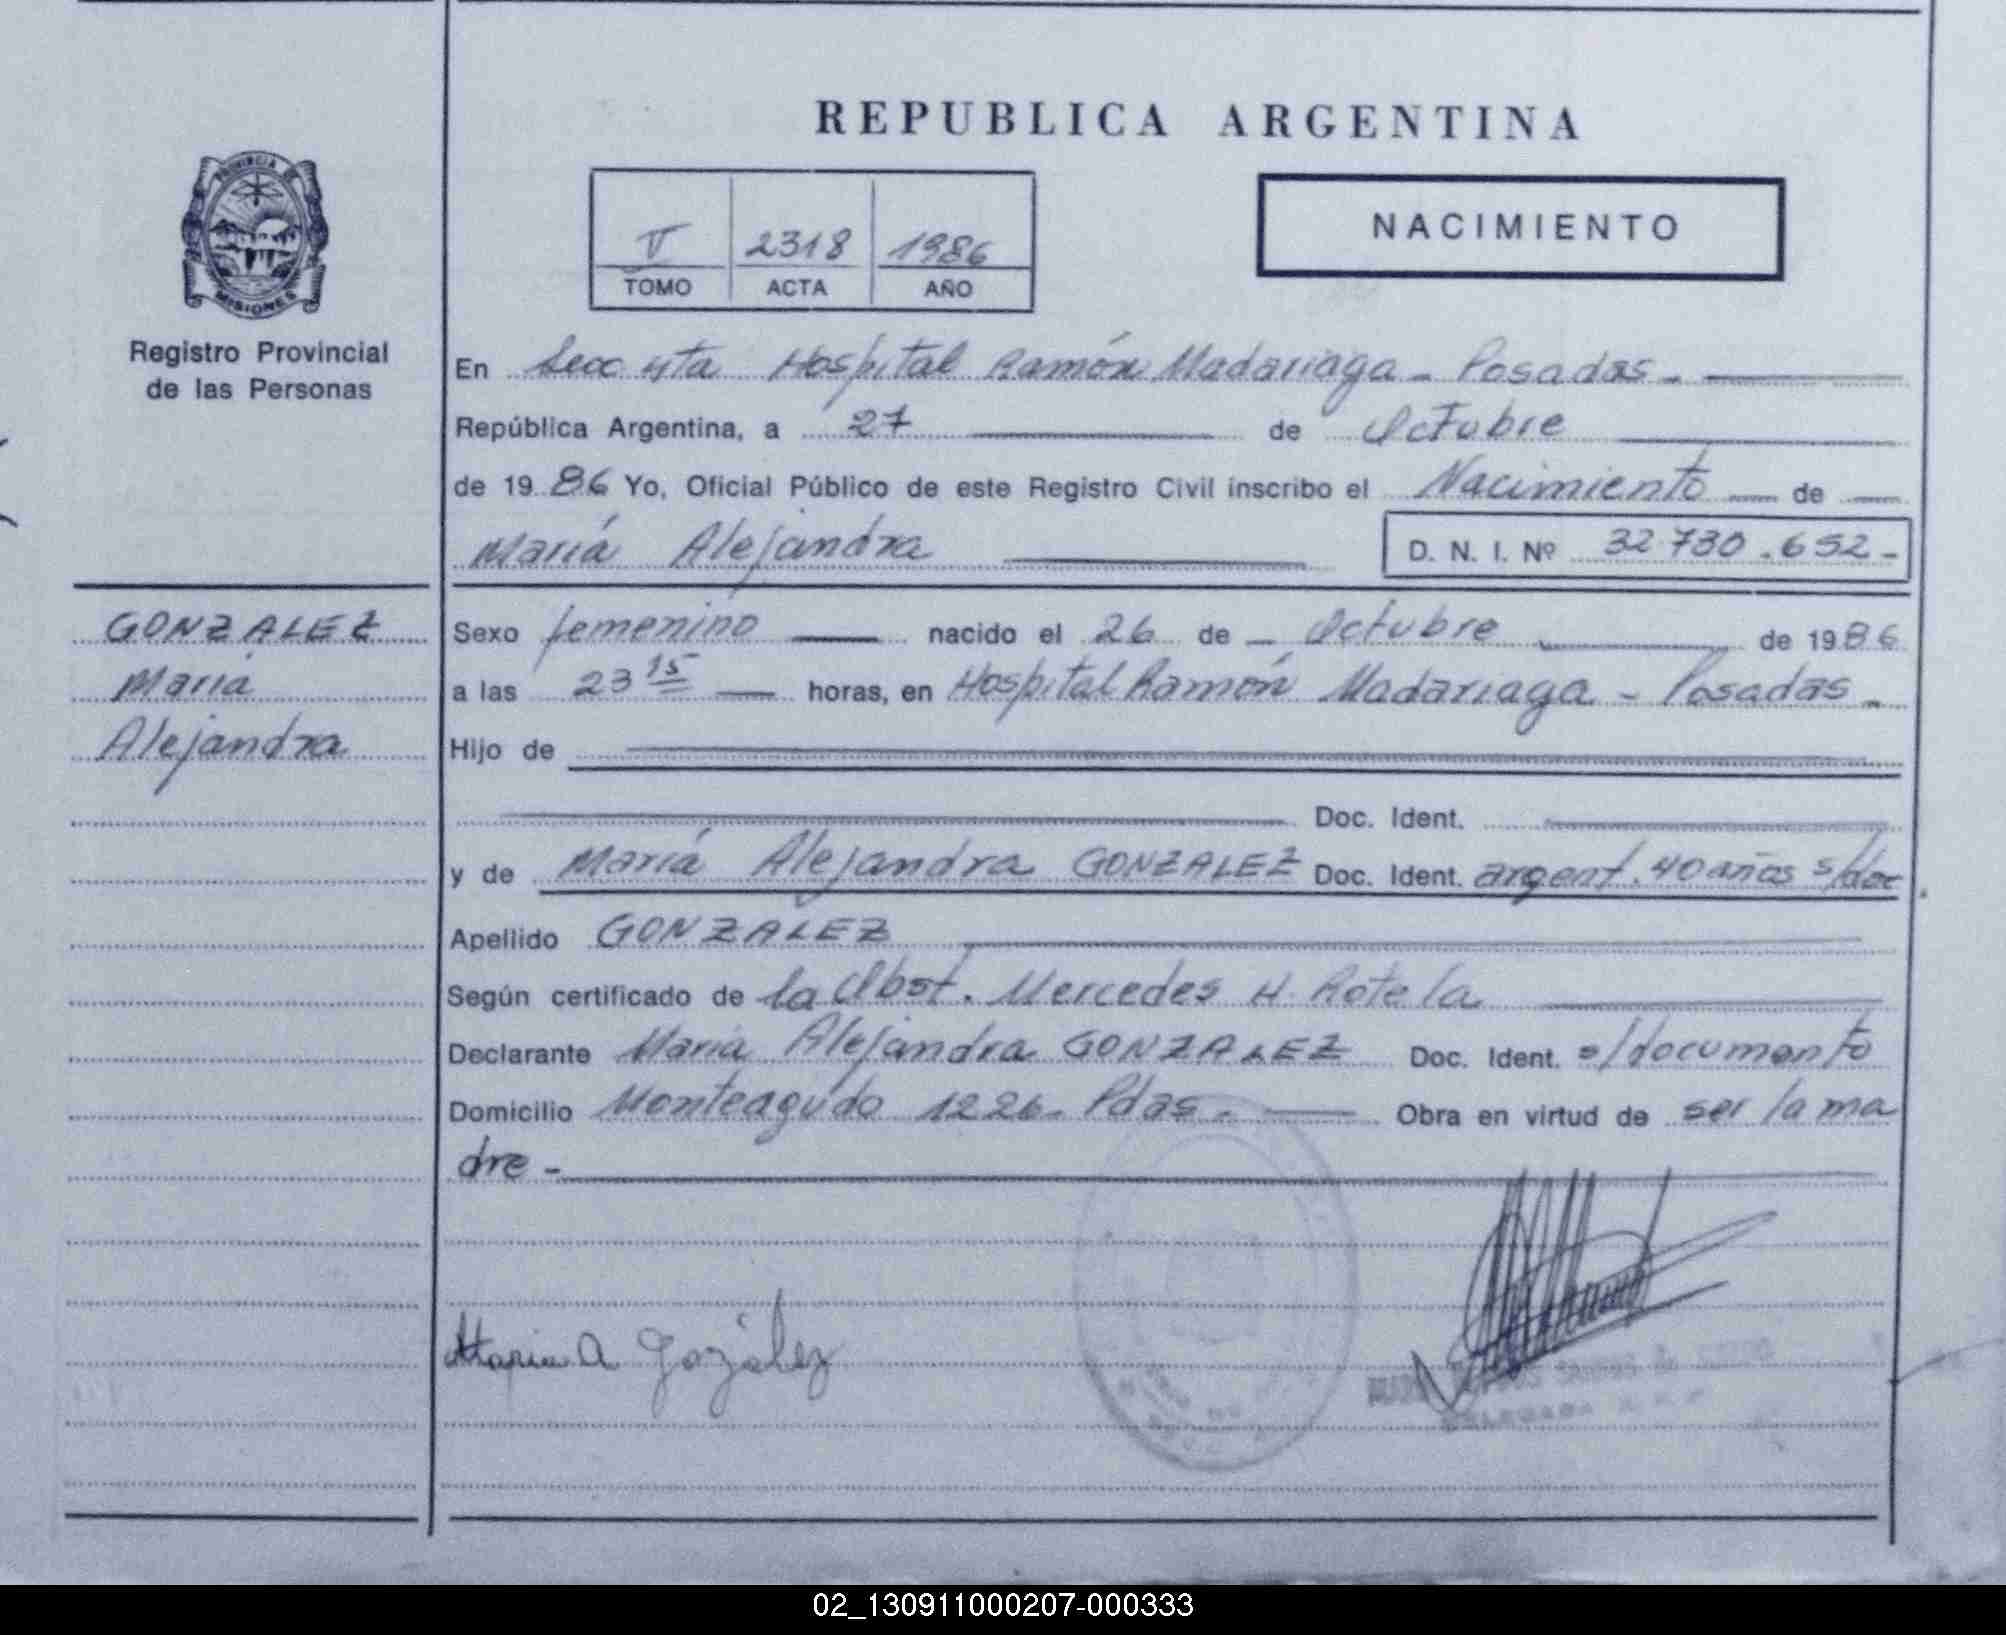 REPUBLICA ARGENTINA
V 2318 1986
TOMO ACTA AÑO
NACIMIENTO
PROVINCIA DE
MISIONES
Registro Provincial
de las Personas
En Secc 4ta Hospital Ramón Madariaga - Posadas -
República Argentina, a 27 de Octubre
de 1986 Yo, Oficial Público de este Registro Civil inscribo el Nacimiento de
María Alejandra
D. N. I. Nº 32.730.652-
GONZALEZ
María
Alejandra
Sexo femenino nacido el 26 de Octubre de 1986
a las 23 15 horas, en Hospital Ramón Madariaga - Posadas -
Hijo de
Doc. Ident.
y de María Alejandra GONZALEZ Doc. Ident. argent. 40 años s/doc
Apellido GONZALEZ
Según certificado de la Obst. Mercedes H. Rotela
Declarante María Alejandra GONZALEZ Doc. Ident. s/documento
Domicilio Monteagudo 1226- Pdas. Obra en virtud de ser la ma
dre -
Maria A Gozález
DELEGADA
02_130911000207-000333